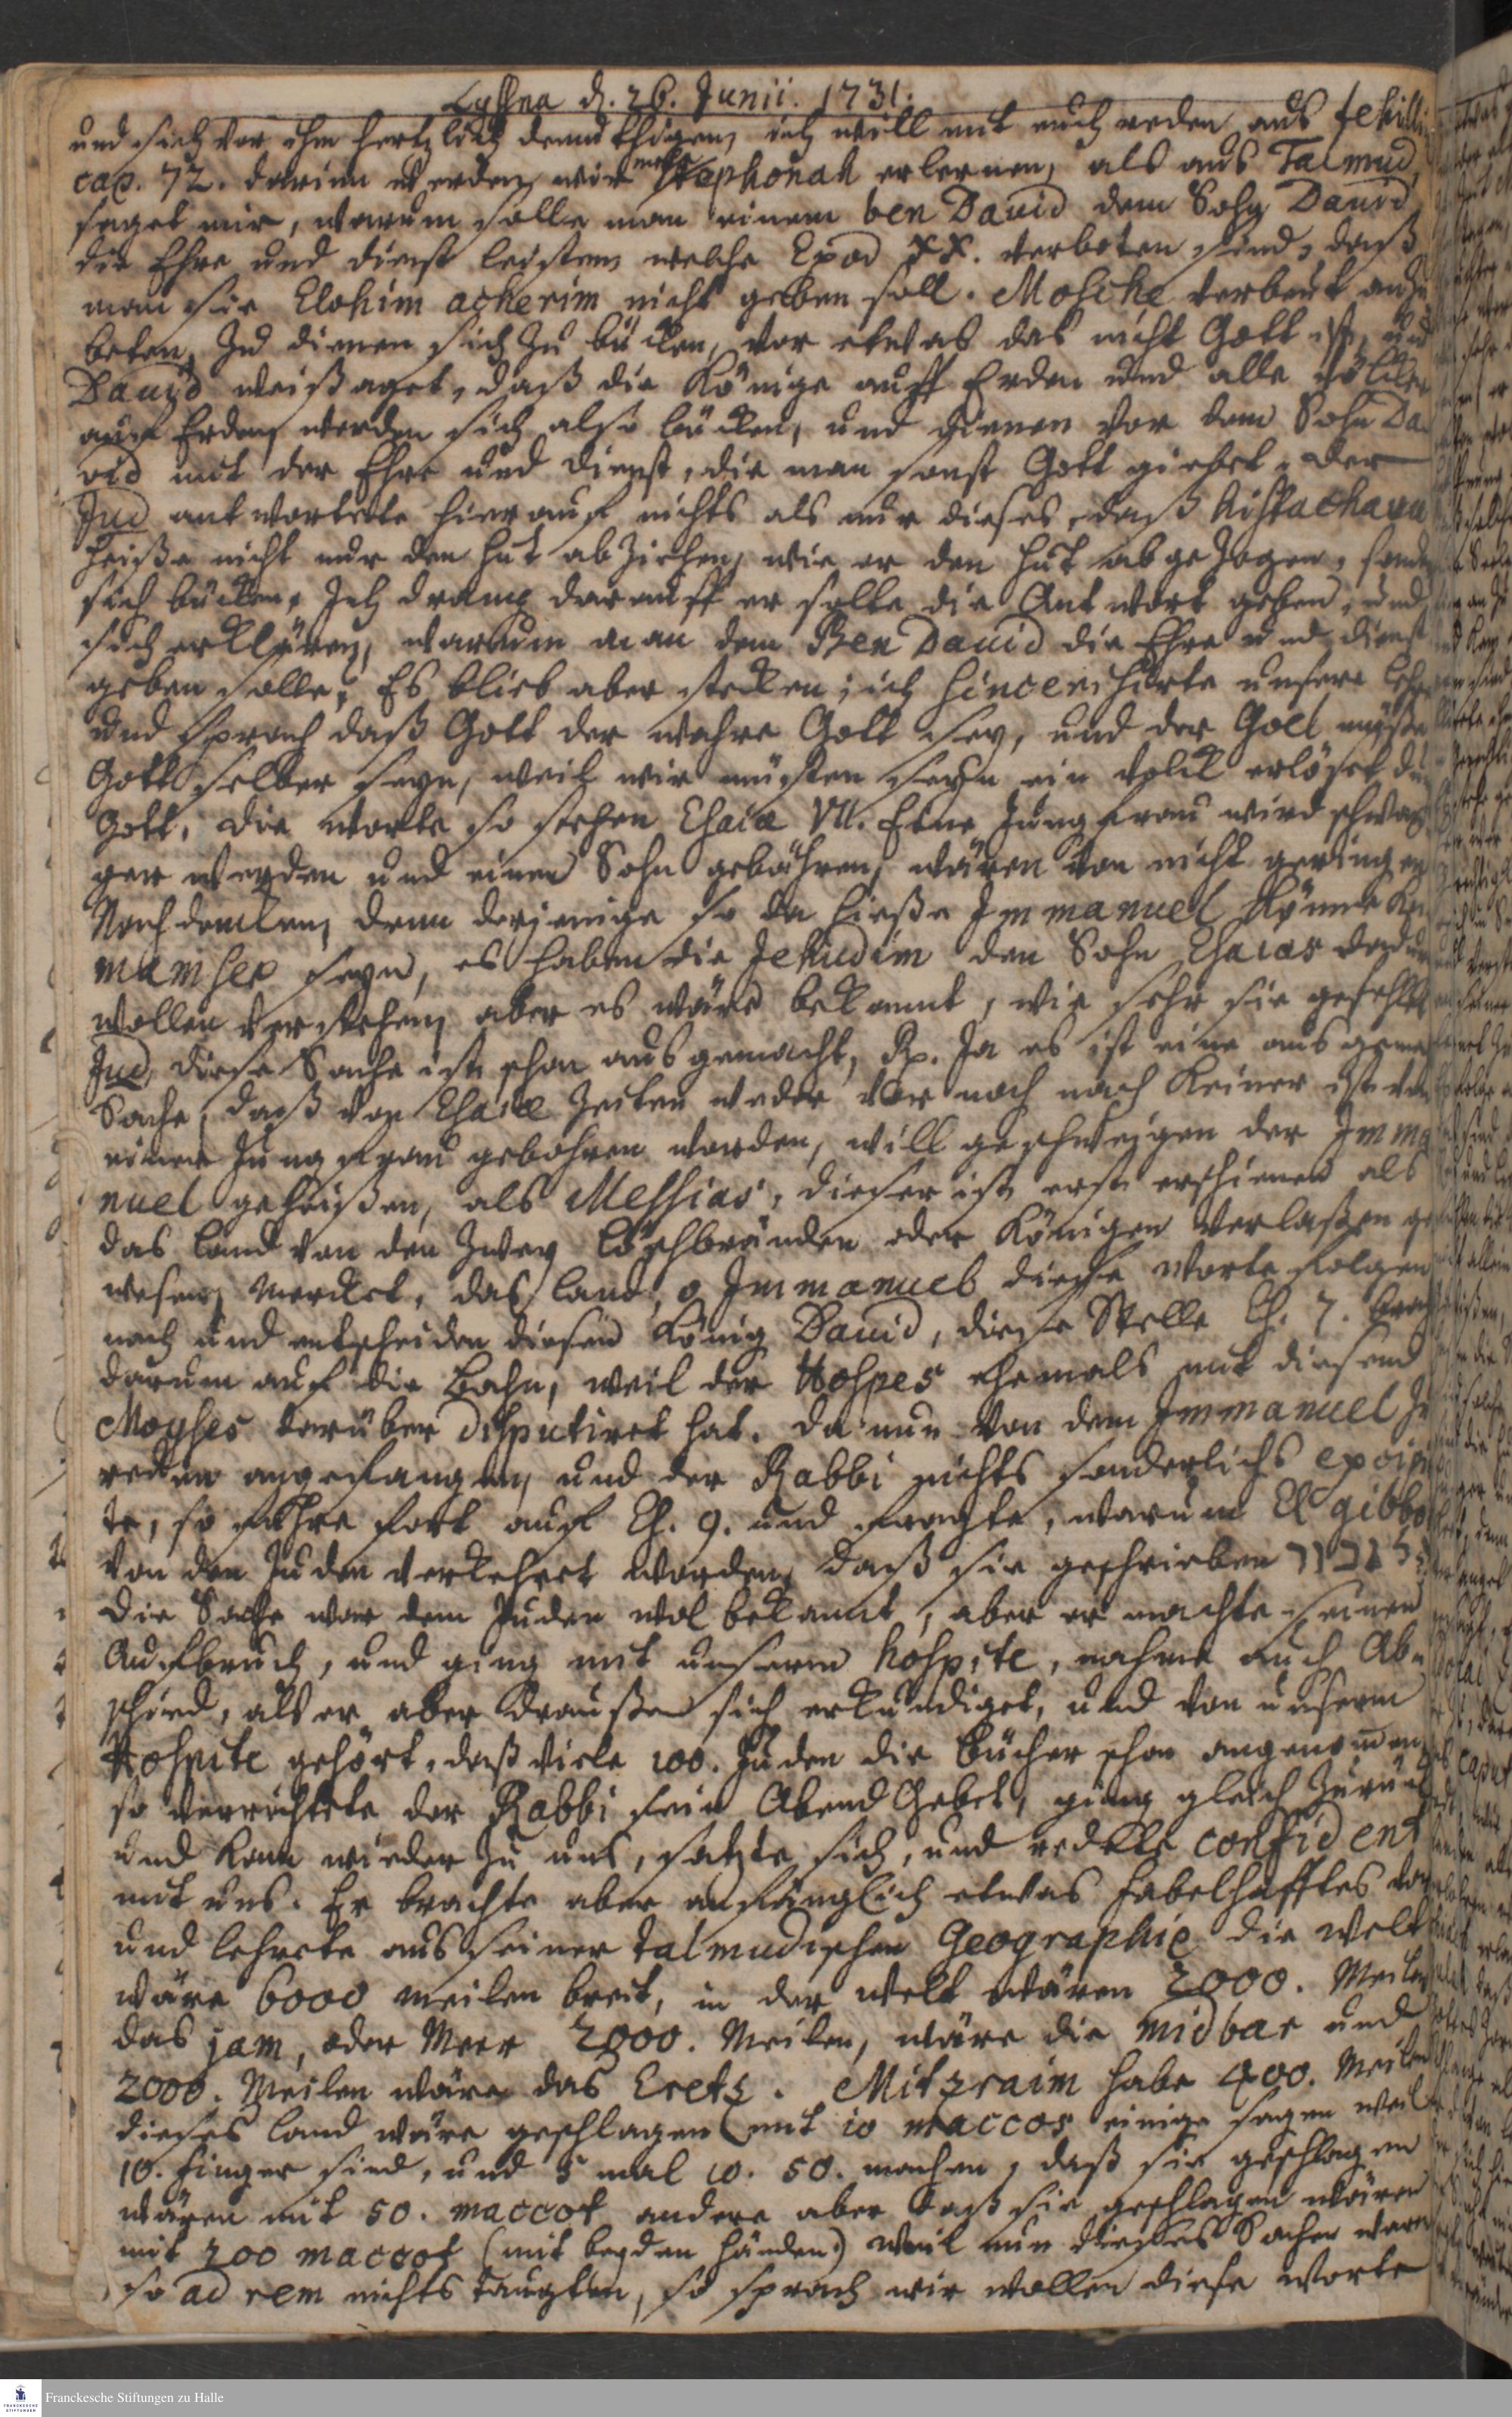 Lyssna d. 26. Junii. 1731.
und sich vor ihm hertzlich demüthigen, ich will mit euch reden aus Tehilli
cap. 72. darinn werden wir mehr erlernen, als aus Talmud,
saget mir, warum solle man einem ben David dem Sohn David
die Ehre und dienst leisten welche Exod XX. verboten sind, daß
man sie Elohim acherim nicht geben soll. Mosche verbeut anzu
beten, zu dienen sich zu bücken, vor etwas das nicht Gott ist, und
David weißaget, daß die Könige auff Erden und alle Völcker
auf Erden werden sich also bücken, und dienen vor dem Sohn Da
vid mit der Ehre und dienst, die man sonst Gott giebet. Der
Jud antwortete hierauf nichts als nur dieses, daß histachava
heiße nicht nur den hut abziehen, wie er den hut abgezogen, sondern
sich bücken. Ich drang darauff er solte die Antwort geben, und
sich erklären, warum man dem Ben David die Ehre und dienst
geben solle; Es blieb aber stecken; ich sincerisirte unsere Lehre
und sprach daß Gott der wahre Gott sey, und der Goel müße
Gott selber seyn, weil wir müsten seyn ein volck erlöset du
Gott, die worte so stehen Esaiæ VII. Eine Jungfrau wird schwan
ger werden und einen Sohn gebähren, wären von nicht geringen
Nachdencken, denn derjenige so da hieße Immanuel könne kein
mamser seyn, es haben die Jehudim den Sohn Esaias dadurch
wollen verstehen, aber es wäre bekannt, wie sehr sie gefehlet
Jud, diese Sache ist schon ausgemacht, Rp. Ja es ist eine ausgema
Sache, daß von Esaiæ Zeiten weder vor noch nach keiner ist von
einer Jungfrau gebohren worden, will geschweigen der Imma
nuel geheißen, als Messias, dieser ist erst erschienen als
das Land von den zwey Löschbränden oder Königen verlaßen ge
wesen, mercket, das Land, o Immanuel diese worte folgen
nach und entscheiden diesen König David, diese Stelle Es. 7. brach
darum auf die Bahn, weil der Hospes ehemals mit diesem
Moyses darüber disputiret hat. Da nun von dem Immanuel zu
reden angefangen, und der Rabbi nichts sonderlichs
te, so fuhre fort auf Es. 9. und fragte, warum El gibbo
von den Juden verkehret worden, daß sie geschrieben
die Sache war dem Juden wol bekannt, aber er machte seinen
Aufbruch, und ging mit unserm hospite, nahm auch Ab-
schied, als er aber draußen sich erkundiget, und von unserm
Hospite gehört, daß viele 100. Juden die Bücher schon angenomen,
so verrichtete der Rabbi sein Abend Gebet, ging gleich zurück
und kam wieder zu uns, satzte sich, und redete confident
mit uns. Er brachte aber anfänglich etwas fabelhafftes vor
und lehrete aus seiner talmudischen Geographie die welt
wäre 6000 meilen breit, in der welt wären 2000. Meilen
das jam, oder Meer 2000. Meilen, wäre die midbar und
2000. Meilen wäre das Eretz. Mitzraim habe 400. Meilen
dieses Land wäre geschlagen (mit 10 maccos einige sagen weil
10. finger sind, und 5 mal 10. 50. machen, daß sie geschlagen
wären mit 50. maccot andere aber daß sie geschlagen wären
mit 200 maccot (mit beyden händen) weil nun dieses Sachen waren
so ad rem nichts taugten, so sprach wir wollen diese worte
Franckesche Stiftungen zu Halle